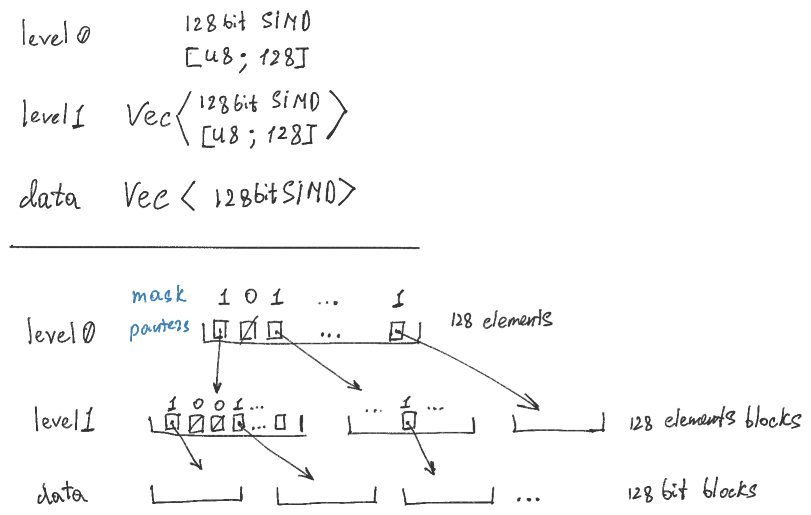 level 0 128 bit SIMD
[u8; 128]
level 1 Vec< 128 bit SIMD >
[u8; 128]
data Vec < 128 bit SIMD>
mask 1 0 1 ... 1
level 0 pointers ... 128 elements
1 0 0 1 ... ... 1 ...
level 1 ... 128 elements blocks
data ... 128 bit blocks